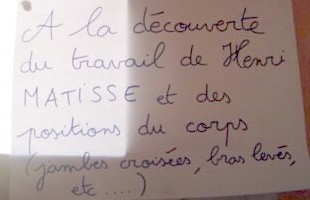 A la découverte
du travail de Henri
MATISSE et des
positions du corps
(jambes croisées, bras levés,
etc ....)